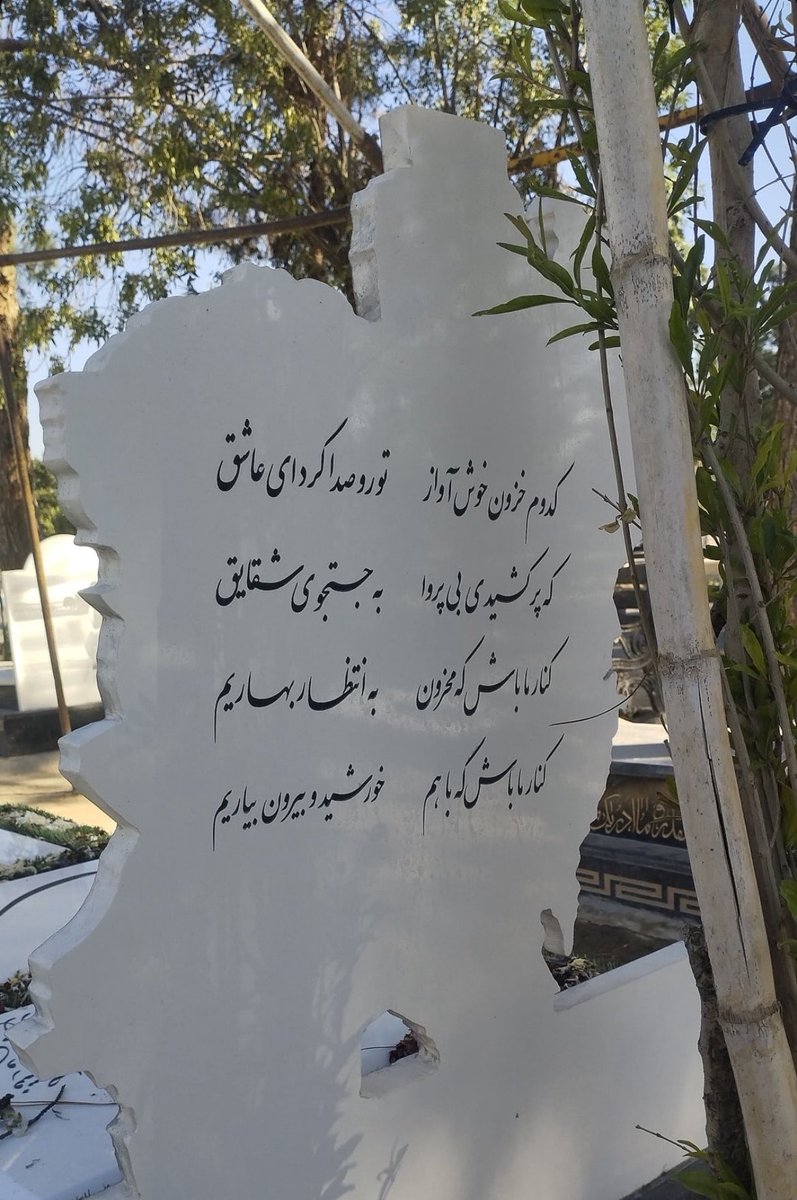 کدوم خزون خوش آواز تو رو صدا کرد ای عاشق
که پر کشیدی بی پروا به جستجوی شقایق
کنار ما باش که محزون به انتظار بهاریم
کنار ما باش که با هم خورشید و بیرون بیاریم